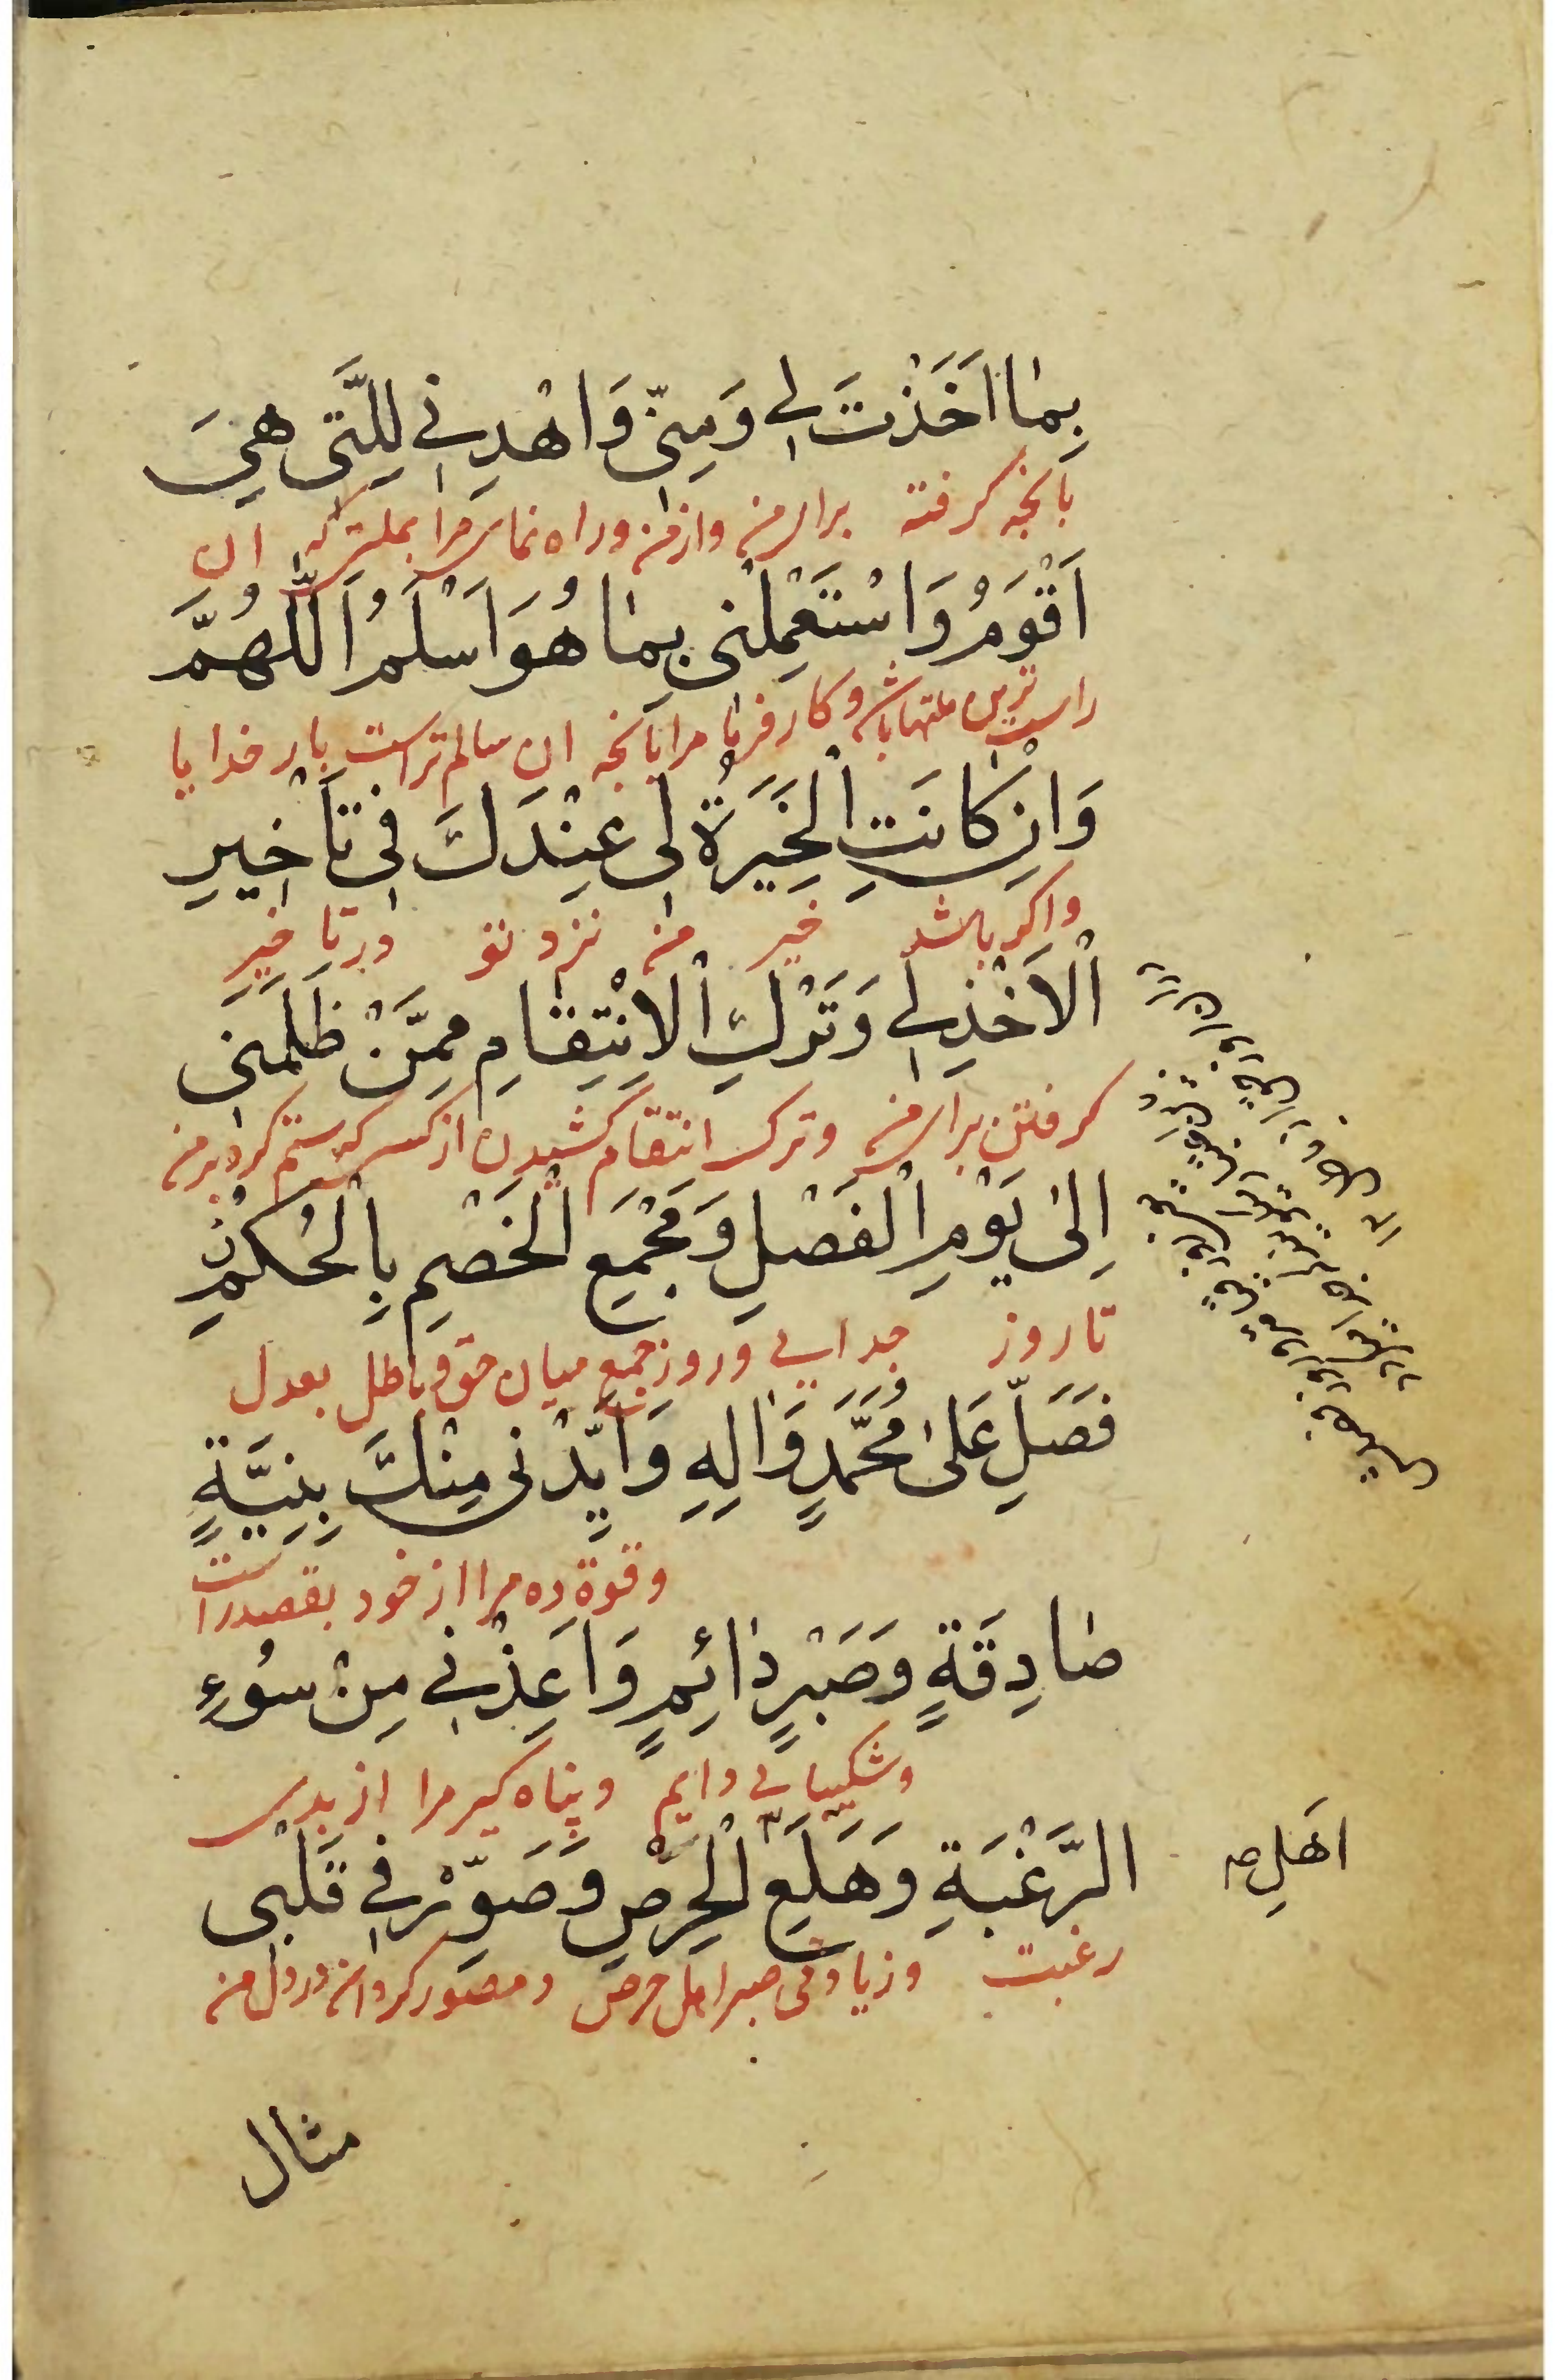 بِمَا اَخَذْتَ لِي وَمِنّي وَاهْدِنِي لِلَّتي هِيَ
بانچه كرفته براى من واز من وراه نماى مرا بملتى كه ان
اَقْوَمُ وَاسْتَعْمِلْنى بِمَا هُوَ اَسْلَمُ اَللّٰهُمَّ
راست ترين ملتها باشد وكار فرما مرا بانچه ان سالم تر است بار خدايا
وَاِنْ كَانَتِ الْخِيَرَةُ لى عِنْدَكَ فى تَأْخيرِ
واكر باشد خير من نزد تو در تاخير
الْاَخْذِ لي وَتَرْكِ الْاِنْتِقَامِ مِمَّنْ ظَلَمَنى
كرفتن براى من وترك انتقام كشيدن از كسى كه ستم كرد بر من
اِلىٰ يَوْمِ الْفَصْلِ وَمَجْمَعِ الْخَصْمِ بِالْحُكْمِ
تا روز جدايي وروز جمع ميان حق وباطل بعدل
فَصَلِّ عَلىٰ مُحَمَّدٍ وَالِهِ وَاَيِّدْنى مِنْكَ بِنِيَّةٍ
وقوة ده مرا از خود بقصد راست
صَادِقَةٍ وَصَبْرٍ دَائِمٍ وَاَعِذْني مِنْ سُوءِ
وشكيبايي دايم وپناه كير مرا از بدى
الرَّغْبَةِ وَهَلَعِ الْحِرْصِ وَصَوِّرْ في قَلْبى
اَهلِ
رغبت وزيادتى صبر اهل حرص ومصور كردان در دل من
مثال